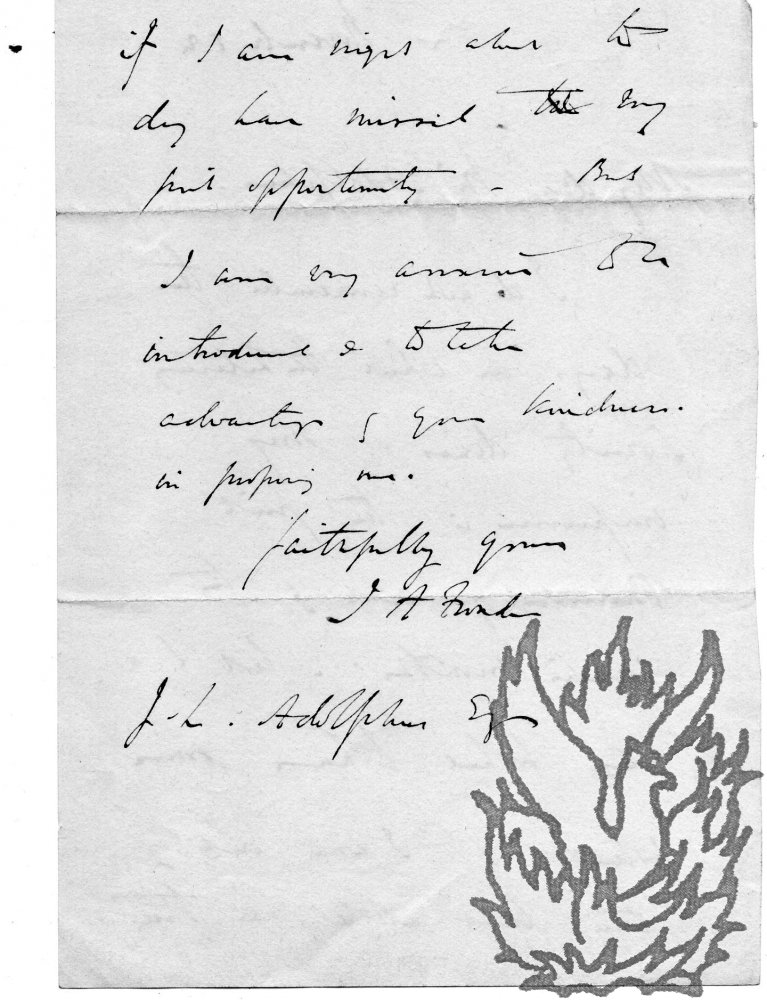 if I am  to
day have missed  my
first opportunity - But
I am very anxious to be
introduced & to take
advantage of your kindness.
in proposing me.
faithfully yours
J A Froude
J. L. Adolphus Esq